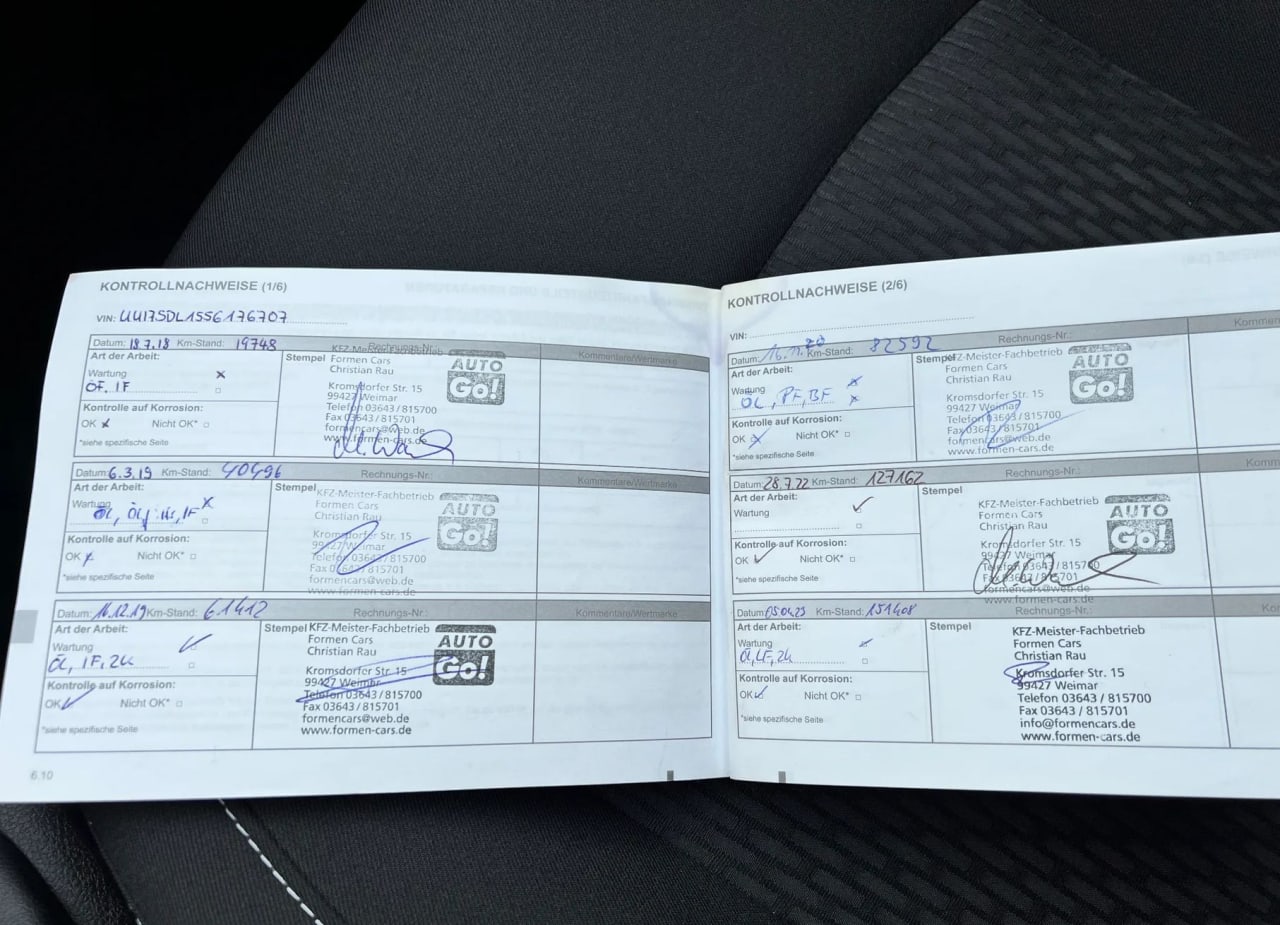 KONTROLLNACHWEISE (1/6)
VIN: UU17SDL1556176707
Datum: 18.7.18 Km-Stand: 19748 Rechnungs-Nr.:
Kommentare/Wertmarke
Art der Arbeit:
Wartung x
ÖF, IF
Kontrolle auf Korrosion:
OK x Nicht OK*
*siehe spezifische Seite
Stempel
KFZ-Meister-Fachbetrieb
Formen Cars
Christian Rau
Kromsdorfer Str. 15
99427 Weimar
Telefon 03643/815700
Fax 03643/815701
formencars@web.de
www.formen-cars.de
AUTO
Go!
Datum: 6.3.19 Km-Stand: 40496 Rechnungs-Nr.:
Kommentare/Wertmarke
Art der Arbeit:
Wartung x
Kontrolle auf Korrosion:
OK x Nicht OK*
*siehe spezifische Seite
Stempel
KFZ-Meister-Fachbetrieb
Formen Cars
Christian Rau
Kromsdorfer Str. 15
99427 Weimar
Telefon 03643/815700
Fax 03643/815701
formencars@web.de
www.formen-cars.de
AUTO
Go!
Datum: 16.12.19 Km-Stand: 61412 Rechnungs-Nr.:
Kommentare/Wertmarke
Art der Arbeit:
Wartung
Öl, IF, ZK
Kontrolle auf Korrosion:
OK Nicht OK*
*siehe spezifische Seite
Stempel
KFZ-Meister-Fachbetrieb
Formen Cars
Christian Rau
Kromsdorfer Str. 15
99427 Weimar
Telefon 03643/815700
Fax 03643/815701
formencars@web.de
www.formen-cars.de
AUTO
Go!
6.10
KONTROLLNACHWEISE (2/6)
VIN:
Datum: 16.11.20 Km-Stand: 82592 Rechnungs-Nr.:
Art der Arbeit:
Wartung x
ÖL, PF, BF x
Kontrolle auf Korrosion:
OK x Nicht OK*
*siehe spezifische Seite
Stempel
KFZ-Meister-Fachbetrieb
Formen Cars
Christian Rau
Kromsdorfer Str. 15
99427 Weimar
Telefon 03643/815700
Fax 03643/815701
formencars@web.de
www.formen-cars.de
AUTO
Go!
Datum: 28.7.22 Km-Stand: 127162 Rechnungs-Nr.:
Art der Arbeit:
Wartung
Kontrolle auf Korrosion:
OK Nicht OK*
*siehe spezifische Seite
Stempel
KFZ-Meister-Fachbetrieb
Formen Cars
Christian Rau
Kromsdorfer Str. 15
99427 Weimar
Telefon 03643/815700
Fax 03643/815701
formencars@web.de
www.formen-cars.de
AUTO
Go!
Datum: 05.04.23 Km-Stand: 151408 Rechnungs-Nr.:
Art der Arbeit:
Wartung
Öl, LF, ZK
Kontrolle auf Korrosion:
OK Nicht OK*
*siehe spezifische Seite
Stempel
KFZ-Meister-Fachbetrieb
Formen Cars
Christian Rau
Kromsdorfer Str. 15
99427 Weimar
Telefon 03643/815700
Fax 03643/815701
info@formencars.de
www.formen-cars.de